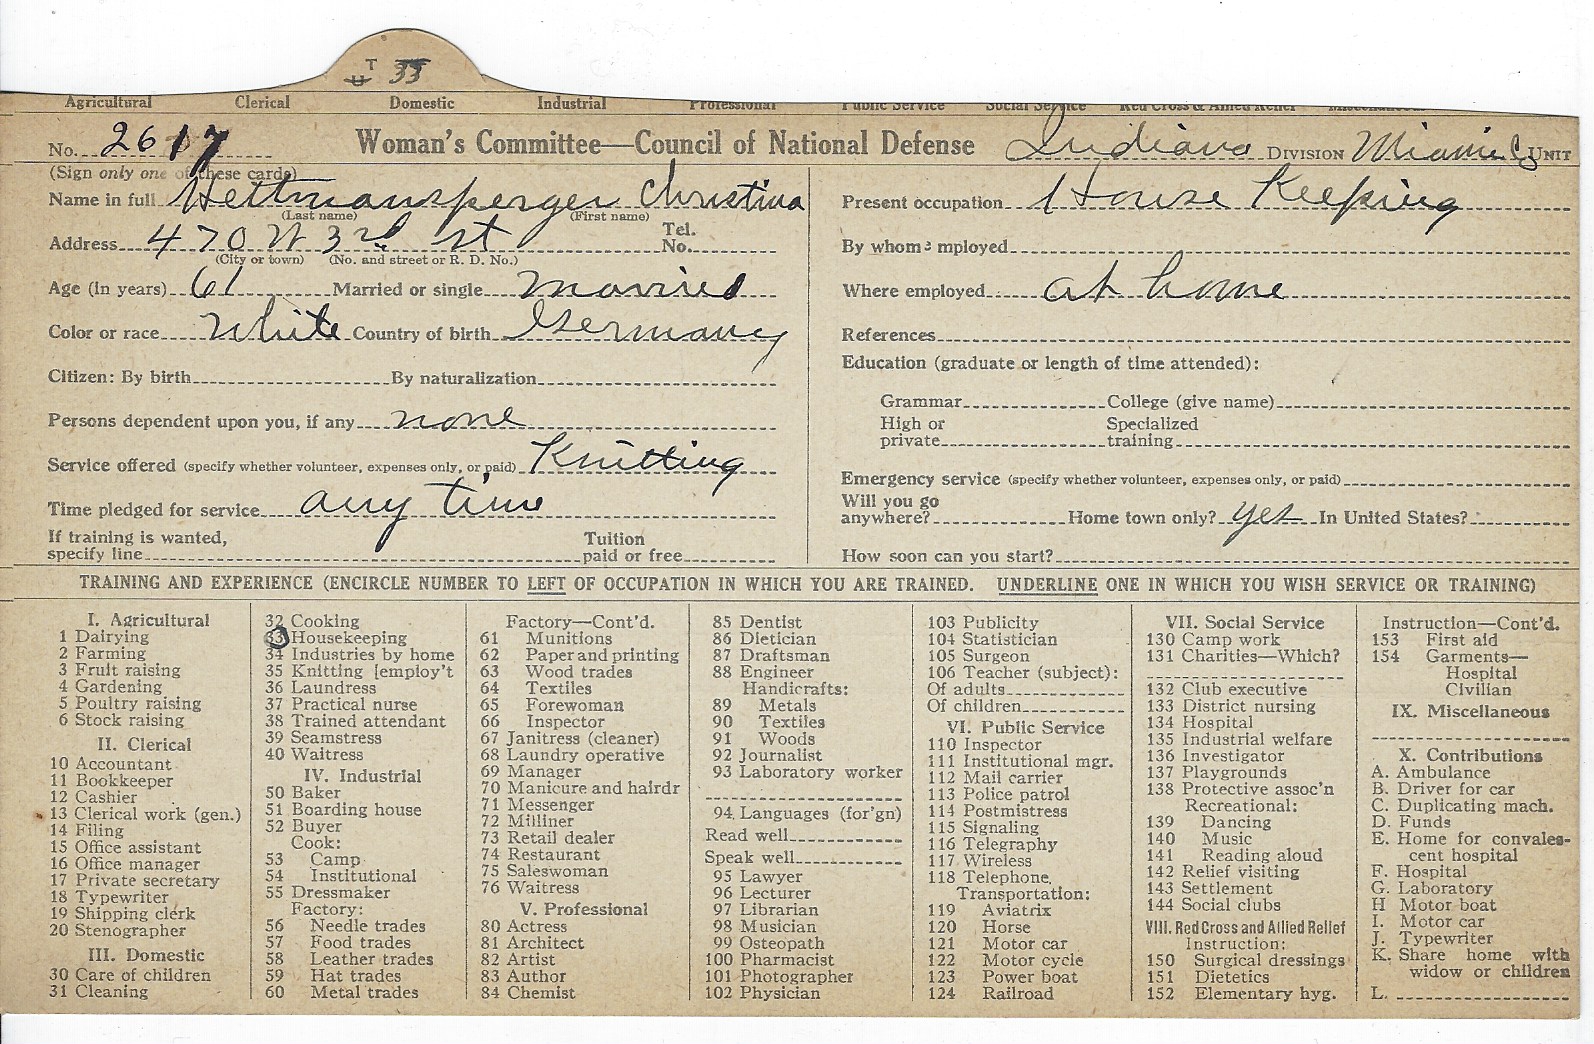 T
U 33
Agricultural Clerical Domestic Industrial Professional Public Service Social Service Red Cross & Allied Relief Miscellaneous
No. 2617 Woman's Committee—Council of National Defense Indiana DIVISION Miami Co UNIT
(Sign only one of these cards)
Name in full Hettmansperger Christina
(Last name) (First name)
Address 470 W 3rd St Tel. No.
(City or town) (No. and street or R. D. No.)
Age (in years) 61 Married or single married
Color or race White Country of birth Germany
Citizen: By birth By naturalization
Persons dependent upon you, if any none
Service offered (specify whether volunteer, expenses only, or paid) Knitting
Time pledged for service any time
If training is wanted, specify line Tuition paid or free
Present occupation House Keeping
By whom employed
Where employed at home
References
Education (graduate or length of time attended):
Grammar College (give name)
High or private Specialized training
Emergency service (specify whether volunteer, expenses only, or paid)
Will you go anywhere? Home town only? yes In United States?
How soon can you start?
TRAINING AND EXPERIENCE (ENCIRCLE NUMBER TO LEFT OF OCCUPATION IN WHICH YOU ARE TRAINED. UNDERLINE ONE IN WHICH YOU WISH SERVICE OR TRAINING)
I. Agricultural
1 Dairying
2 Farming
3 Fruit raising
4 Gardening
5 Poultry raising
6 Stock raising
II. Clerical
10 Accountant
11 Bookkeeper
12 Cashier
13 Clerical work (gen.)
14 Filing
15 Office assistant
16 Office manager
17 Private secretary
18 Typewriter
19 Shipping clerk
20 Stenographer
III. Domestic
30 Care of children
31 Cleaning
32 Cooking
33 Housekeeping
34 Industries by home
35 Knitting [employ't
36 Laundress
37 Practical nurse
38 Trained attendant
39 Seamstress
40 Waitress
IV. Industrial
50 Baker
51 Boarding house
52 Buyer
Cook:
53 Camp
54 Institutional
55 Dressmaker
Factory:
56 Needle trades
57 Food trades
58 Leather trades
59 Hat trades
60 Metal trades
Factory—Cont'd.
61 Munitions
62 Paper and printing
63 Wood trades
64 Textiles
65 Forewoman
66 Inspector
67 Janitress (cleaner)
68 Laundry operative
69 Manager
70 Manicure and hairdr
71 Messenger
72 Milliner
73 Retail dealer
74 Restaurant
75 Saleswoman
76 Waitress
V. Professional
80 Actress
81 Architect
82 Artist
83 Author
84 Chemist
85 Dentist
86 Dietician
87 Draftsman
88 Engineer
Handicrafts:
89 Metals
90 Textiles
91 Woods
92 Journalist
93 Laboratory worker
94 Languages (for'gn)
Read well
Speak well
95 Lawyer
96 Lecturer
97 Librarian
98 Musician
99 Osteopath
100 Pharmacist
101 Photographer
102 Physician
103 Publicity
104 Statistician
105 Surgeon
106 Teacher (subject):
Of adults
Of children
VI. Public Service
110 Inspector
111 Institutional mgr.
112 Mail carrier
113 Police patrol
114 Postmistress
115 Signaling
116 Telegraphy
117 Wireless
118 Telephone
Transportation:
119 Aviatrix
120 Horse
121 Motor car
122 Motor cycle
123 Power boat
124 Railroad
VII. Social Service
130 Camp work
131 Charities—Which?
132 Club executive
133 District nursing
134 Hospital
135 Industrial welfare
136 Investigator
137 Playgrounds
138 Protective assoc'n
Recreational:
139 Dancing
140 Music
141 Reading aloud
142 Relief visiting
143 Settlement
144 Social clubs
VIII. Red Cross and Allied Relief
Instruction:
150 Surgical dressings
151 Dietetics
152 Elementary hyg.
Instruction—Cont'd.
153 First aid
154 Garments—
Hospital
Civilian
IX. Miscellaneous
X. Contributions
A. Ambulance
B. Driver for car
C. Duplicating mach.
D. Funds
E. Home for convales-
cent hospital
F. Hospital
G. Laboratory
H Motor boat
I. Motor car
J. Typewriter
K. Share home with
widow or children
L.